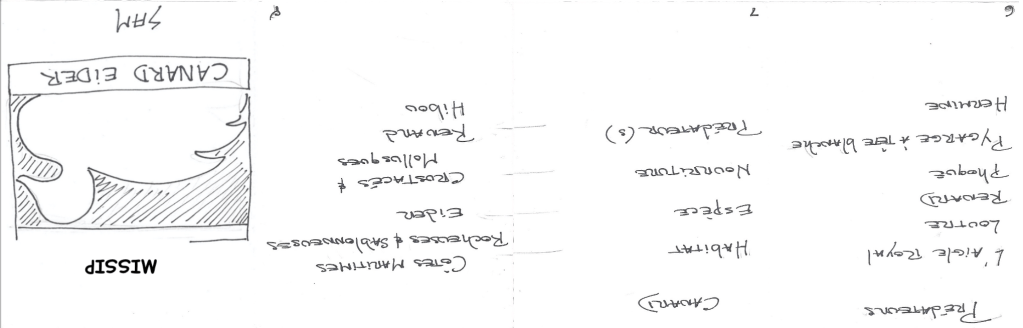 PRÉDATEURS
L'AIGLE ROYAL
LOUTRE
RENARD
PHOQUE
PYGARGE À TÊTE BLANCHE
HERMINE
6
CANARD
HABITAT
ESPÈCE
NOURRITURE
PRÉDATEUR(S)
7
CÔTES MARITIMES
ROCHEUSES & SABLONNEUSES
EIDER
CRUSTACÉS &
MOLLUSQUES
RENARD
HIBOU
8
MISSIP
CANARD EIDER
SAM